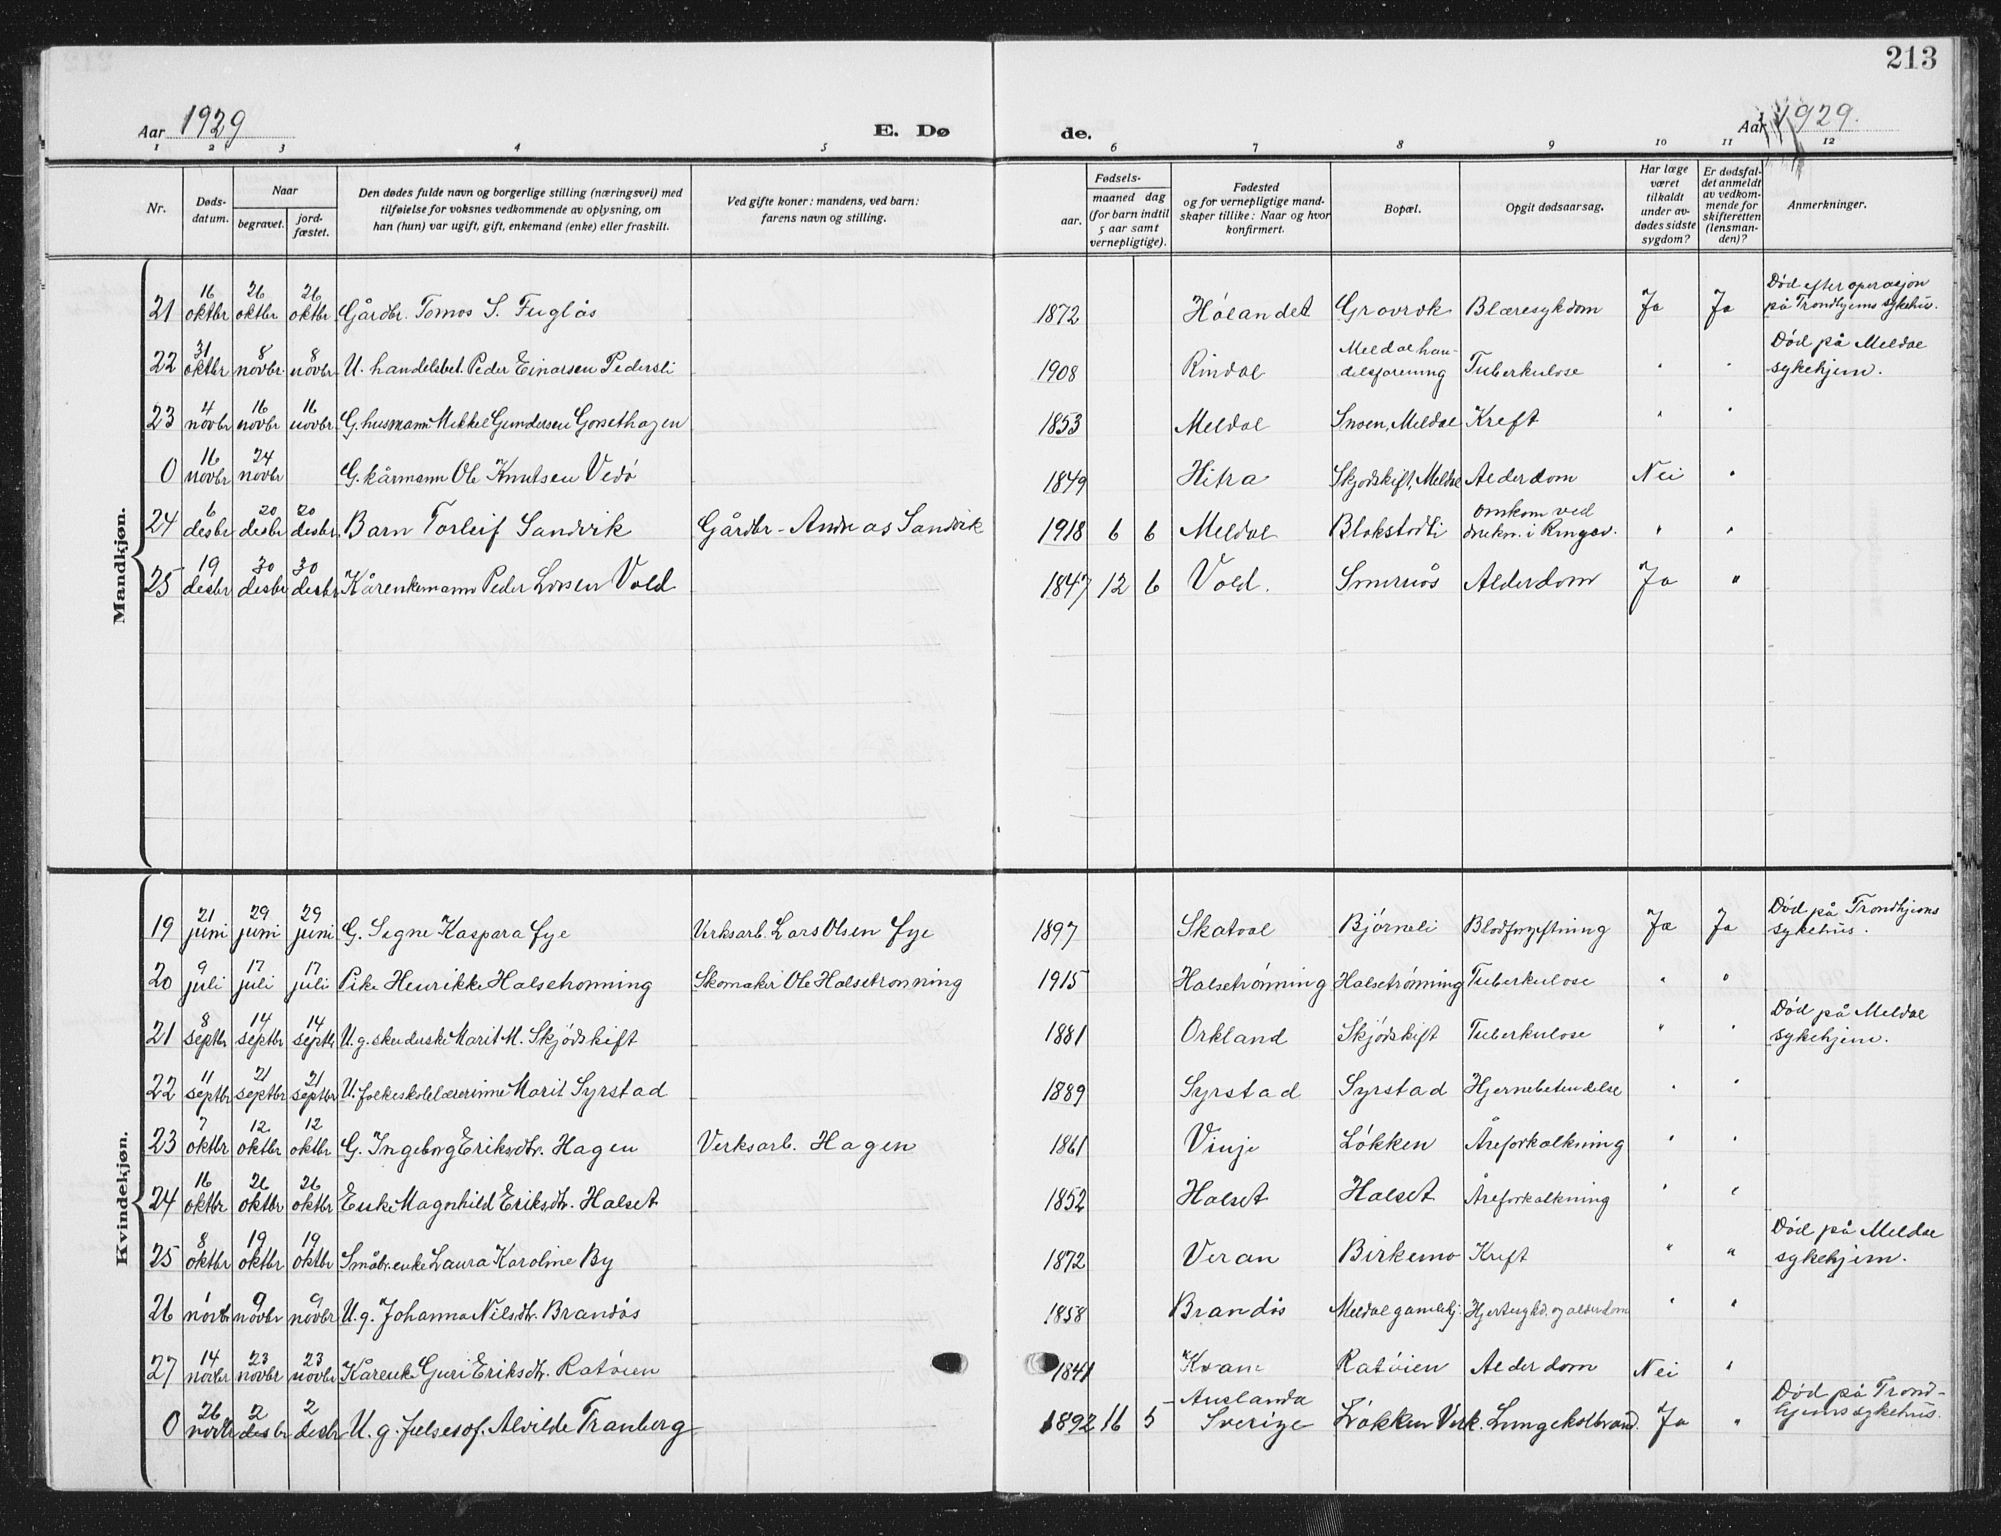 213
Aar 1929
E. Dø
de.
Aar 1929.
1 2 3 4 5 6 7 8 9 10 11 12
Nr.
Døds-
datum.
Naar
begravet.
jord-
fæstet.
Den dødes fulde navn og borgerlige stilling (næringsvei) med
tilføielse for voksnes vedkommende av oplysning, om
han (hun) var ugift, gift, enkemand (enke) eller fraskilt.
Ved gifte koner: mandens, ved barn:
farens navn og stilling.
Fødsels-
aar.
maaned dag
(for barn indtil
5 aar samt
vernepligtige).
Fødested
og for vernepligtige mand-
skaper tillike: Naar og hvor
konfirmert.
Bopæl.
Opgit dødsaarsag.
Har læge
været
tilkaldt
under av-
dødes sidste
sygdom?
Er dødsfal-
det anmeldt
av vedkom-
mende for
skifteretten
(lensman-
den)?
Anmerkninger.
Mandkjøn.
21 16 oktbr 26 oktbr 26 oktbr Gårdbr. Tomas S. Fuglås 1872 Hølandet Gravrok Blæresykdom Ja Ja Død efter operasjon
på Trondhjems sykehus.
22 31 oktbr 8 novbr. 8 novbr. U. handelsbet. Peder Einarsen Pedersli 1908 Rindal Meldal han-
delsforening Tuberkulose " " Død på Meldal
sykehjem.
23 4 novbr 16 novbr 16 novbr. G. husmann Mikkel Gundersen Gorsethagen 1853 Meldal Snoen, Meldal Kreft " "
0 16 novbr 24 novbr G. kårmann Ole Knutsen Vedø 1849 Hitra Skjødskift, Meldal Alderdom Nei "
24 6 desbr 20 desbr 20 desbr. Barn Torleif Sandvik Gårdbr. Andreas Sandvik 1918 6 6 Meldal Blokstødli omkom ved
drukn. i Ringav. " "
25 19 desbr 30 desbr 30 desbr Kårenkemann Peder Larsen Vold 1847 12 6 Vold. Smernøs Alderdom Ja "
Kvindekjøn.
19 21 juni 29 juni 29 juni G. Signe Kaspara Fye Verksarb. Lars Olsen Fye 1897 Skatval Bjørneli Blodforgiftning Ja Ja Død på Trondhjems
sykehus.
20 9 juli 17 juli 17 juli Pike Henrikke Halsetrønning Skomaker Ole Halsetrønning 1915 Halsetrønning Halsetrønning Tuberkulose " "
21 8 septbr 14 septbr 14 septbr U. g. skrederske Marit M. Skjødskift 1881 Orkland Skjødskift Tuberkulose " " Død på Meldal
sykehjem.
22 11 septbr 21 septbr 21 septbr U. folkeskolelærerinne Marit Syrstad 1889 Syrstad Syrstad Hjernebetendelse " "
23 7 oktbr 12 oktbr 12 oktbr G. Ingeborg Eriksdtr. Hagen Verksarb. Hagen 1861 Vinje Løkken Åreforkalkning " "
24 16 oktbr 26 oktbr 26 oktbr Enke Magnhild Eriksdtr. Halset 1852 Halset Halset Åreforkalkning " "
25 8 oktbr 19 oktbr 19 oktbr Småbr. enke Laura Karoline By 1872 Veran Birkemo Kreft " " Død på Meldal
sykehjem.
26 1 novbr 9 novbr 9 novbr U. g. Johanna Nilsdtr. Brandås 1858 Brandås Meldal gamlehj. Hjertesykd. og alderdom " "
27 14 novbr 23 novbr 23 novbr Kårenke Guri Eriksdtr. Ratøien 1841 Kvam Ratøien Alderdom Nei "
0 26 novbr 2 desbr 2 desbr U. g. Alvilde Tranberg 1892 16 5
Sverige Løkken Verk. Lungekoldbrand. Ja " Død på Trond-
hjems sykehus.